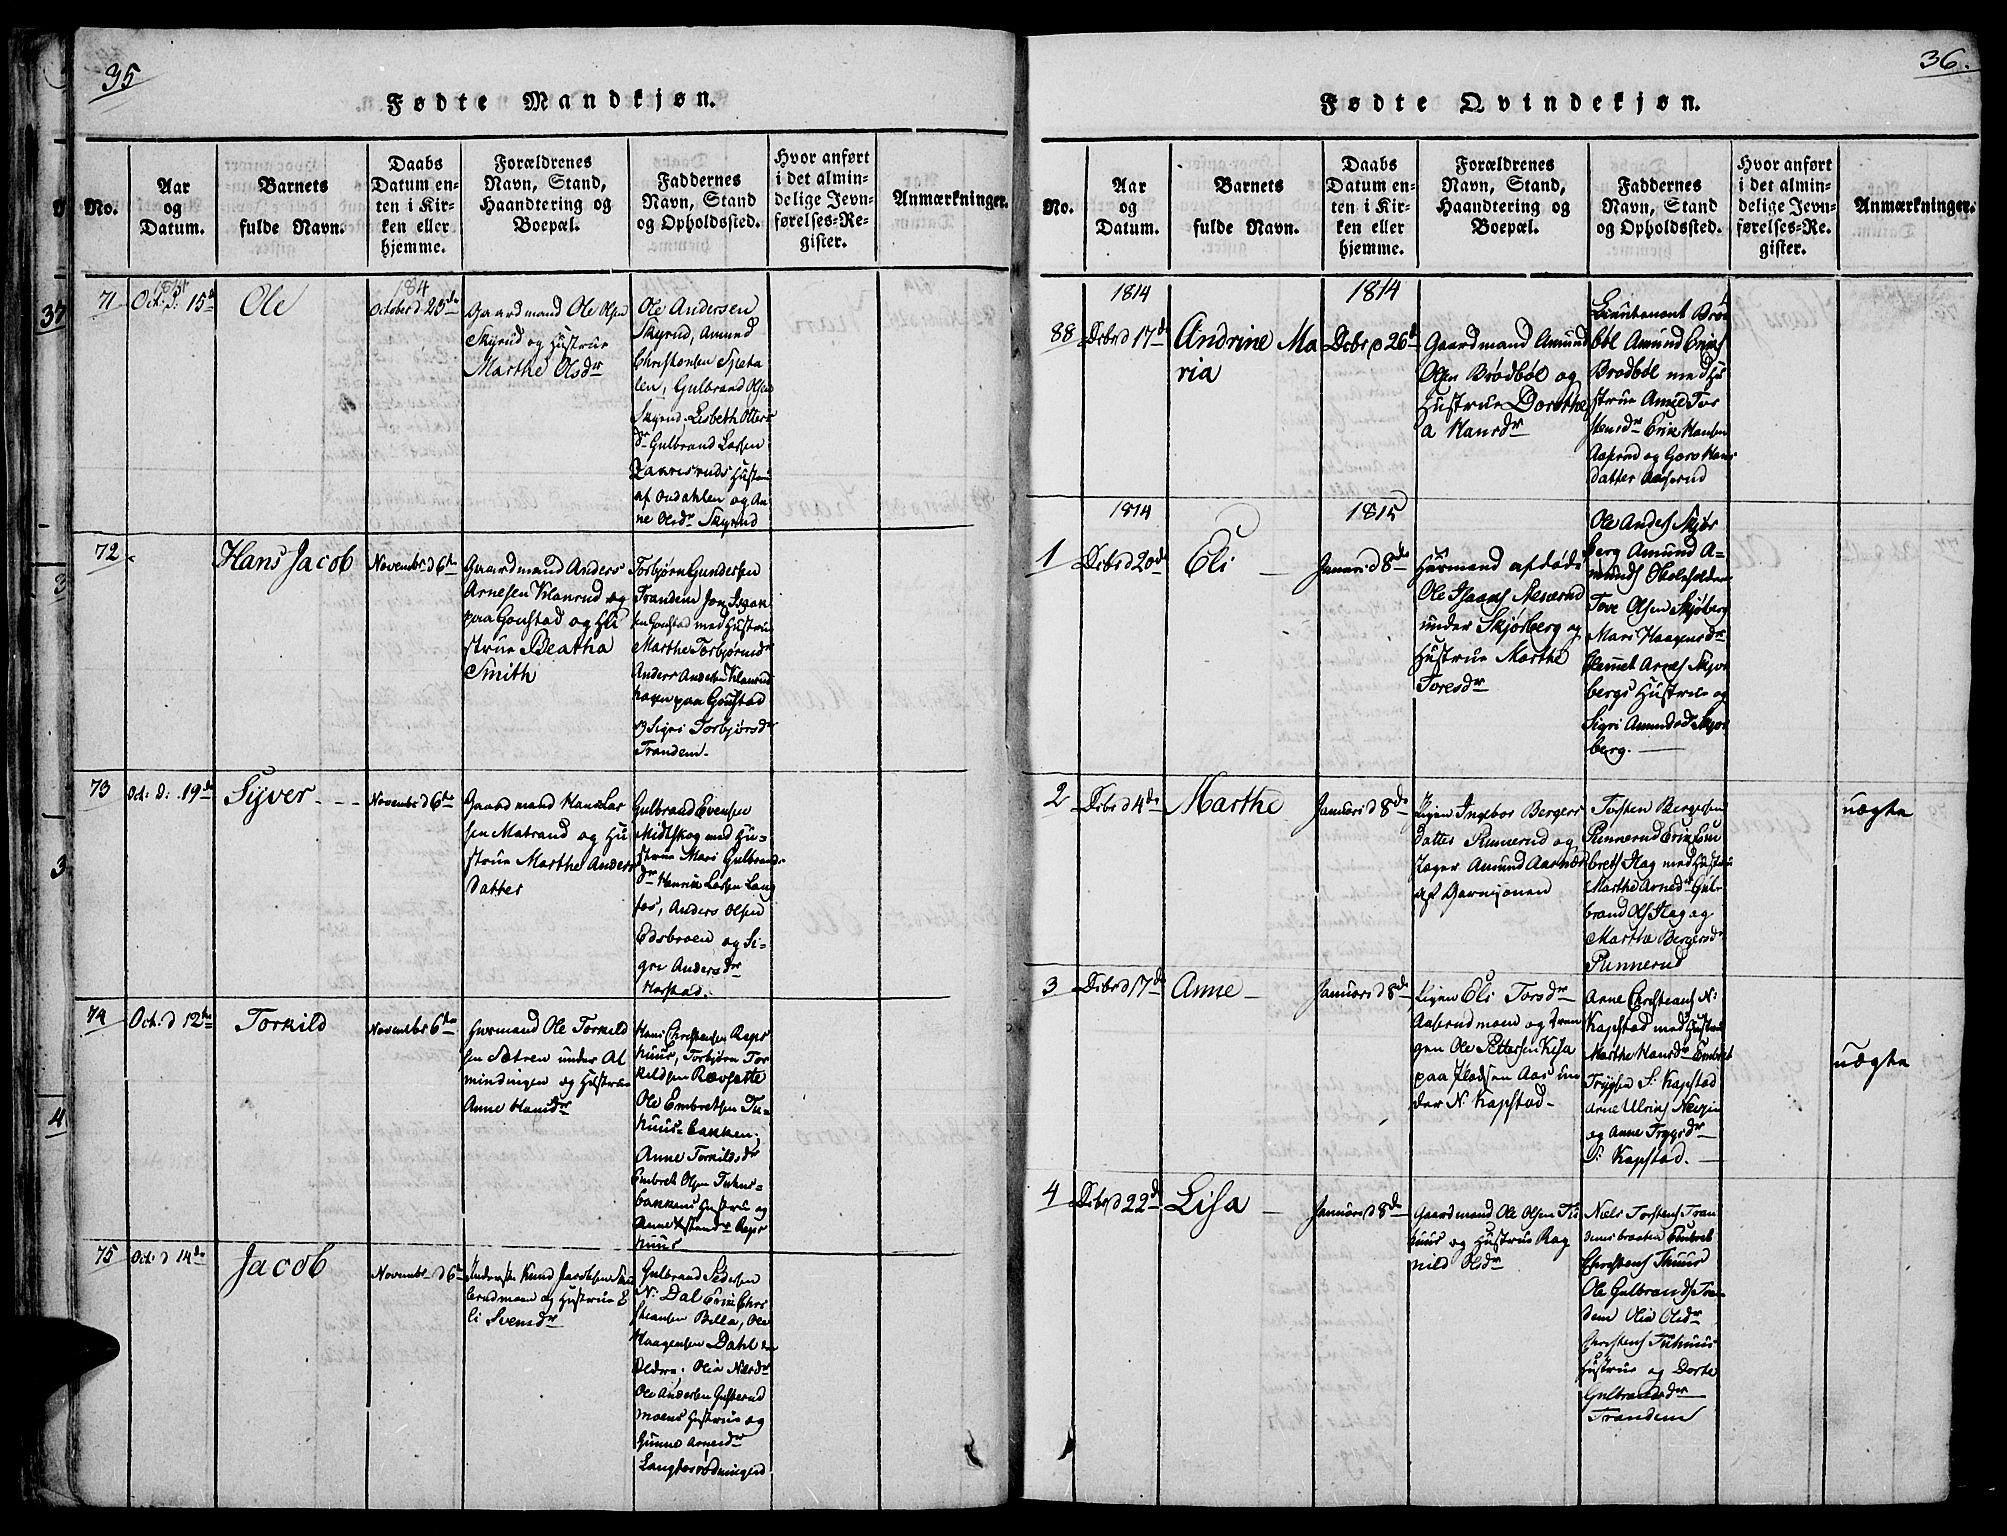 35
Fødte Mandkjøn.
No.
Aar
og
Datum.
Barnets
fulde Navn.
Daabs
Datum en-
ten i Kir-
ken eller
hjemme.
Forældrenes
Navn, Stand,
Haandtering og
Boepæl.
Faddernes
Navn, Stand
og Opholdssted.
Hvor anført
i det almin-
delige Jevn-
førelses-Re-
gister.
Anmærkninger.
71
Oct: d: 15de
Ole
October d 23de
Gaardmand Ole Olsen
Skyrud og Hustrue
Marthe Olsdr
Ole Andersen
Skyrud, Amund
Christensen
Gulbrand Olsen
Skyrud, Lisbeth Otters
dr Gulbrand Larsen
Hustrue
af Ondahlen og An
ne Olsdr Skyrud
72
Hans Jacob
Novembr d 6te
Gaardmand Anders
Arnesen Klanrud og
paa Gonstad og Hu
strue Beatha
Smith
Torbjørn Gundersen
Trandem Jon Isaak
sen Gonstad med Hustrue
Marthe Torbjørnsdr
Anders Andersen Klanrud
paa Gonstad
og Sigri Torbjørsdr
Trandem.
73
Oct: d: 19de
Syver
Novembr d 6te
Gaardmand Hans Lar
sen Matrand og Hu
strue Marthe Anders
datter
Gulbrand Evensen
Midtskog med Hu-
strue Mari Gulbrands
dr Henrik Larsen Lang
fos, Anders Olsen
Edsbroen og Si-
gri Andersdr
Harstad.
74
Oct: d 12te
Torkild
Novembr 6te
Huusmand Ole Torkild
sen Sætren under Al
mindingen og Hustrue
Anne Hansdr
Hans Christensen
Torbjørn Tor
kildsen Rævsætte
Ole Embretsen Tu-
huus-bakken,
Anne Torkildsdr
Embret Olsen Tuhus-
bakkens Hustru og
Anne
huus
75
Oct: d 14de
Jacob
Novembr d 6te
Knud Jacobsen
moen og Hustrue E
li Svensdr
Gulbrand Pedersen
N: Dal Erik Chri
stiansen Billa, Ole
Haagensen Dahl den
Eldre, Olia Nilsdr
Ole Andersen Gulterud
moens Hustrue og
Gunne Arnesdr
Langfosrødningen
36.
Fødte Qvindekjøn.
No.
Aar
og
Datum.
Barnets
fulde Navn.
Daabs
Datum en-
ten i Kir-
ken eller
hjemme.
Forældrenes
Navn, Stand,
Haandtering og
Boepæl.
Faddernes
Navn, Stand
og Opholdssted.
Hvor anført
i det almin-
delige Jevn-
førelses-Re-
gister.
Anmærkninger.
1814
1814
88
Dcbr d 17de
Andrine Ma
ria
Dcbr d 26de
Gaardmand Amund
Olsen Brødbøl og
Hustrue Dorothe
a Hansdr
Lieutenant Brød
bøl Amund Erichs
Brødbøl med Hu
strue Anne Tor
stensdr Erik Hansen
Aaserud og Goro Hans
datter Aaserud
1814
1815
1
Dcbr d 20de
Eli
Januari d 8de
Huusmand afdøde
Ole Isaacs Neserud
under Skjørberg og
Hustrue Marthe
Toresdr
Ole Anders Skjør
berg Amund A-
munds
Tore Olsen Skjøberg
Mari Haagensdr
Clemet Arnes Skjør
bergs Hustrue og
Sigri Amundsdr Skjør
berg.
2
Dcbr d 4de
Marthe
Januari d 8de
Pigen Ingebor Bergers
datter Linnerud og
Jæger Amund Aarnæs
af Garnisonen
Torsten Bergersen
Linnerud Erik Em
brets Hag med Hustru
Marthe Arnedr Gul-
brand Ols Hag og
Marthe Bergersdr
Linnerud
uægte
3
Dcbr d 17de
Anne
Januari d 8de
Pigen Eli Torsdr
Aaserudmoen og Dren
gen Ole Pettersen Kisa
paa Pladsen Aas un
der N: Kapstad.
Arne Christians N:
Kapstad med Hustrue
Marthe Hansdr Embret
Trygsen S: Kapstad
Arne Ulrichs
og Anne Trygsdr
S: Kapstad.
uægte
4
Dcbr d 22de
Lisa
Januari d 8de
Gaardmand Ole Olsen Tu
huus og Hustrue Rag
nild Olsdr
Niels Torstens Tran
demsbraaten Embret
Christens Tuhuus
Ole Gulbrands Tran
dem Olia Olsdr
Christens Tuhuus
Hustrue og Dorte
Gulbrandsdr
Trandem